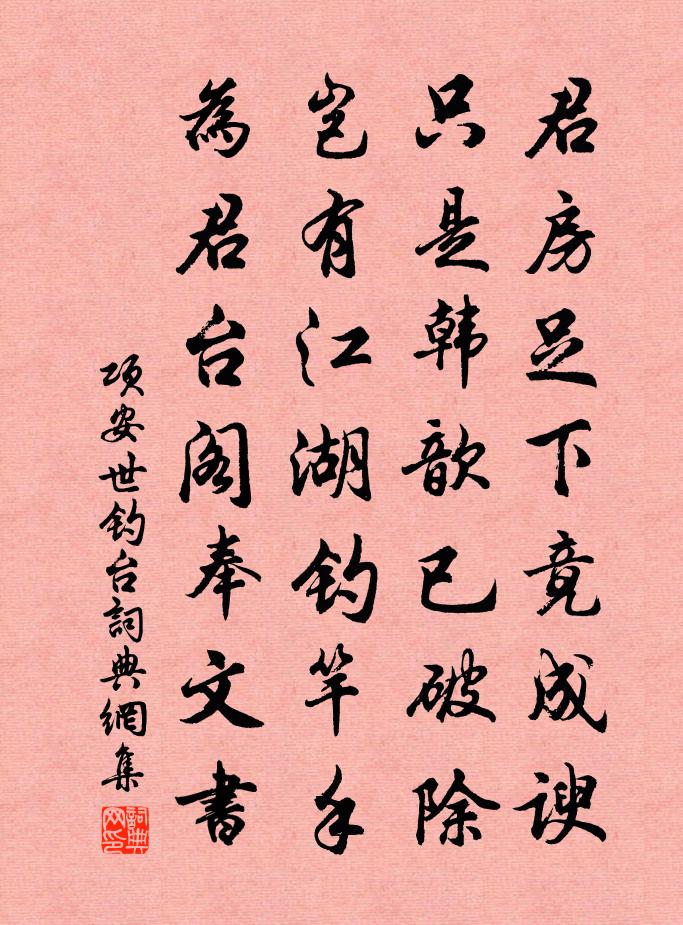 君房足下竟成谀
只是韩歆已破除
岂有江湖钓竿手
為君台阁奉文書
项安世钓台詞典網集
詞典网印